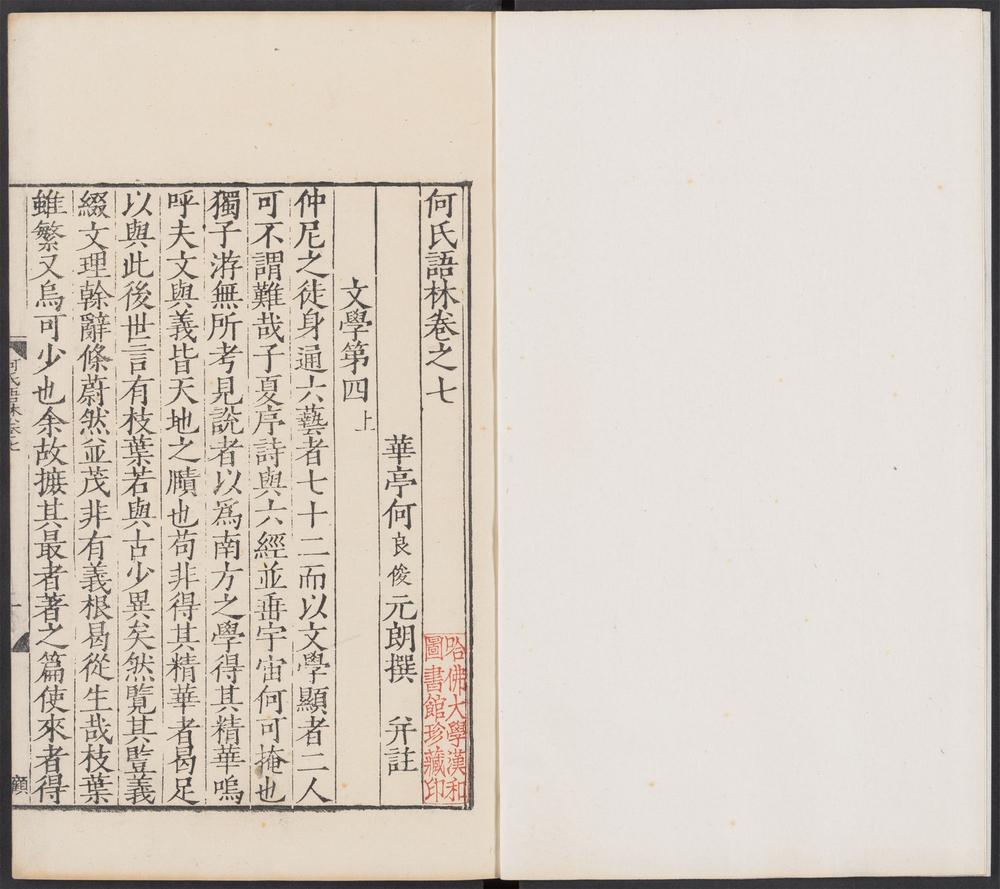 何氏語林卷之七
華亭何良俊元朗撰 幷註
文學第四上
仲尼之徒身通六藝者七十二而以文學顯者二人
可不謂難哉子夏序詩與六經並垂宇宙何可掩也
獨子游無所考見說者以爲南方之學得其精華嗚
呼夫文與義皆天地之賾也苟非得其精華者曷足
以與此後世言有枝葉若與古少異矣然覽其豎義
綴文理榦辭條蔚然並茂非有義根曷從生哉枝葉
雖繁又烏可少也余故摭其最者著之篇使來者得
何氏語林卷之七
一
顧
哈佛大學漢和
圖書館珍藏印